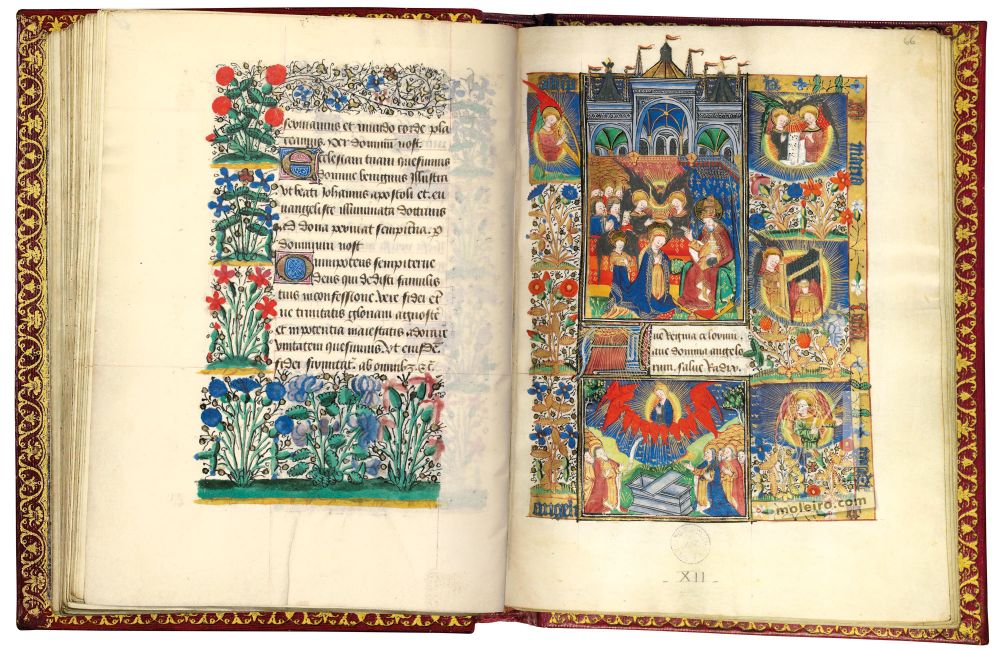 seruiamus et mundo corde pla
ceamus. Per dominum nost.
Ecclesiam tuam quesumus
domine benignus illustra
Vt beati Johannis apostoli et eu
uangeliste illuminata doctrinis
ad dona perueniat sempitna. P
dominum nost
Omnipotens sempiterne
deus qui dedisti famulis
tuis in confessione vere fidei et
ne trinitatis gloriam agnosce
et in potentia maiestatis adorare
vnitatem quesumus. Vt eiusde
fidei firmitat. ab omnib3. &c.
66
Aue Regina celorum.
aue domina angelo
rum, salue Radix.
moleiro.com
- XII -